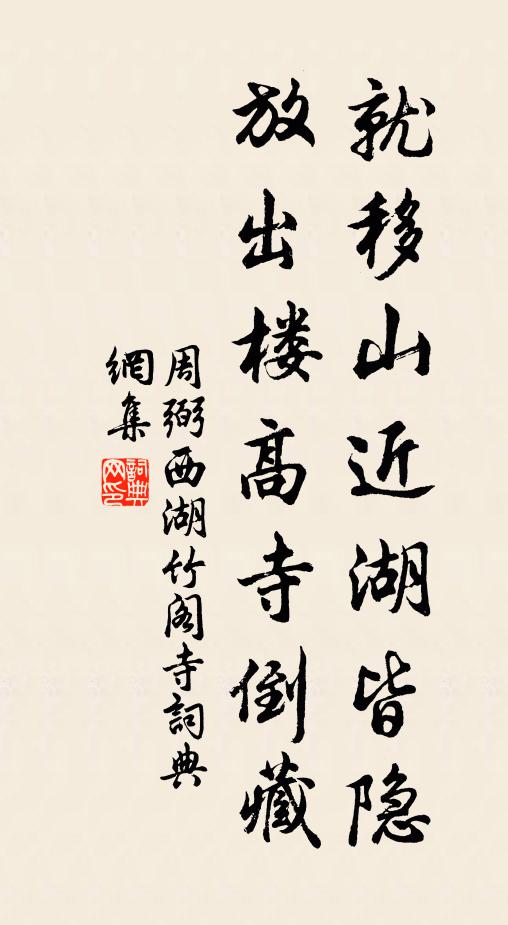 就移山近湖皆隐
放出楼高寺倒藏
周弼西湖竹阁寺詞典
網集
詞典网印